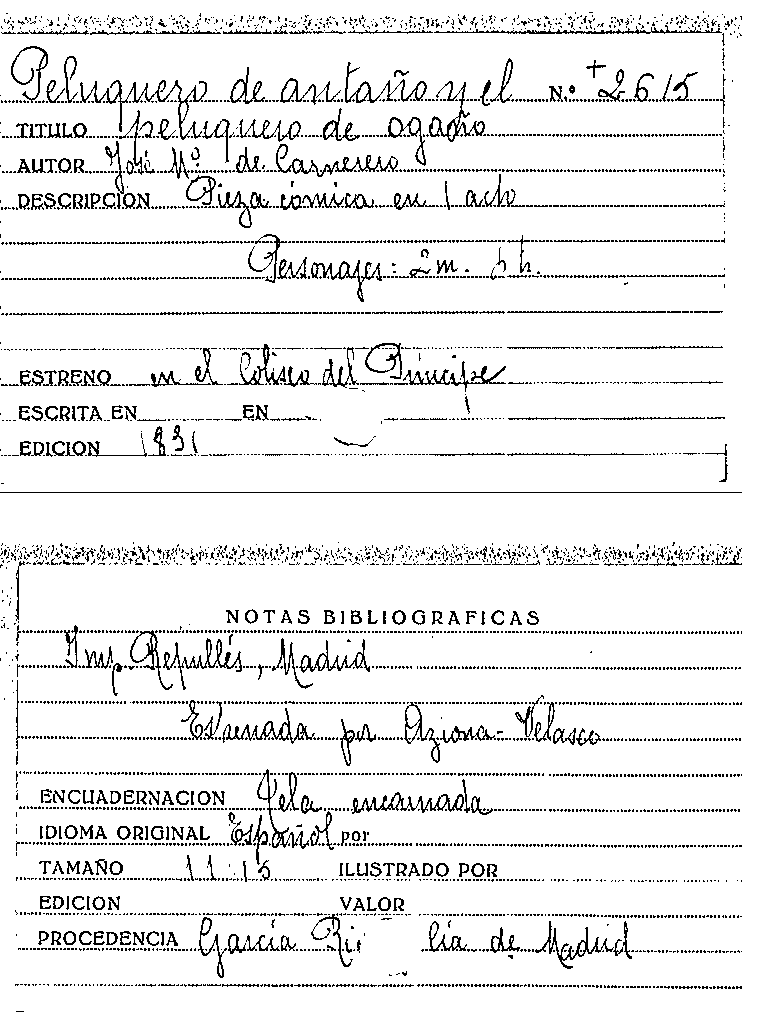 Peluquero de antaño y el N.º +2615
TITULO peluquero de ogaño
AUTOR José Mº de Carnerero
DESCRIPCIÓN Pieza cómica en 1 acto
Personajes: 2m. h.
ESTRENO en el Coliseo del Príncipe
ESCRITA EN EN
EDICION 1831
NOTAS BIBLIOGRAFICAS
Imp. Repullés, Madrid
Estrenada por Azcona-Velasco
ENCUADERNACION Tela encarnada
IDIOMA ORIGINAL Español por
TAMAÑO 11:15 ILUSTRADO POR
EDICION VALOR
PROCEDENCIA García Ri lía de Madrid